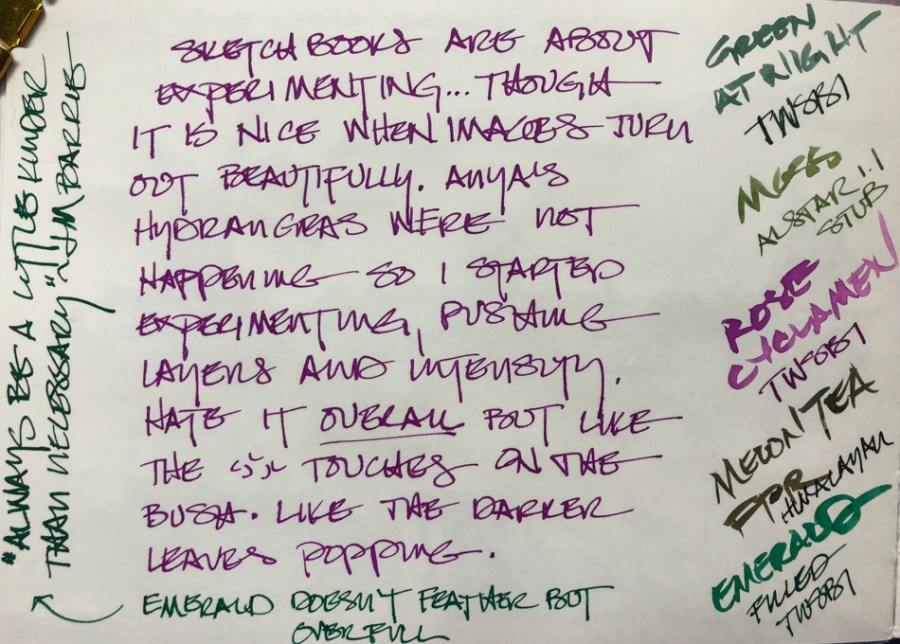 SKETCHBOOKS ARE ABOUT
EXPERIMENTING... THOUGH
IT IS NICE WHEN IMAGES TURN
OUT BEAUTIFULLY. ANYA'S
HYDRANGEAS WERE NOT
HAPPENING SO I STARTED
EXPERIMENTING, PUSHING
LAYERS AND INTENSITY.
HATE IT OVERALL BUT LIKE
THE TOUCHES ON THE
BUSH. LIKE THE DARKER
LEAVES POPPING.
EMERALD DOESN'T FEATHER BUT
OVERFULL
"ALWAYS BE A LITTLE KINDER
THAN NECESSARY" ~JM BARRIE
GREEN
AT NIGHT
TWSBI
MOSS
ALSTAR 1.1
STUB
ROSE
CYCLAMEN
TWSBI
MELON TEA
HIMALAYAN
EMERALD
FILLED
TWSBI